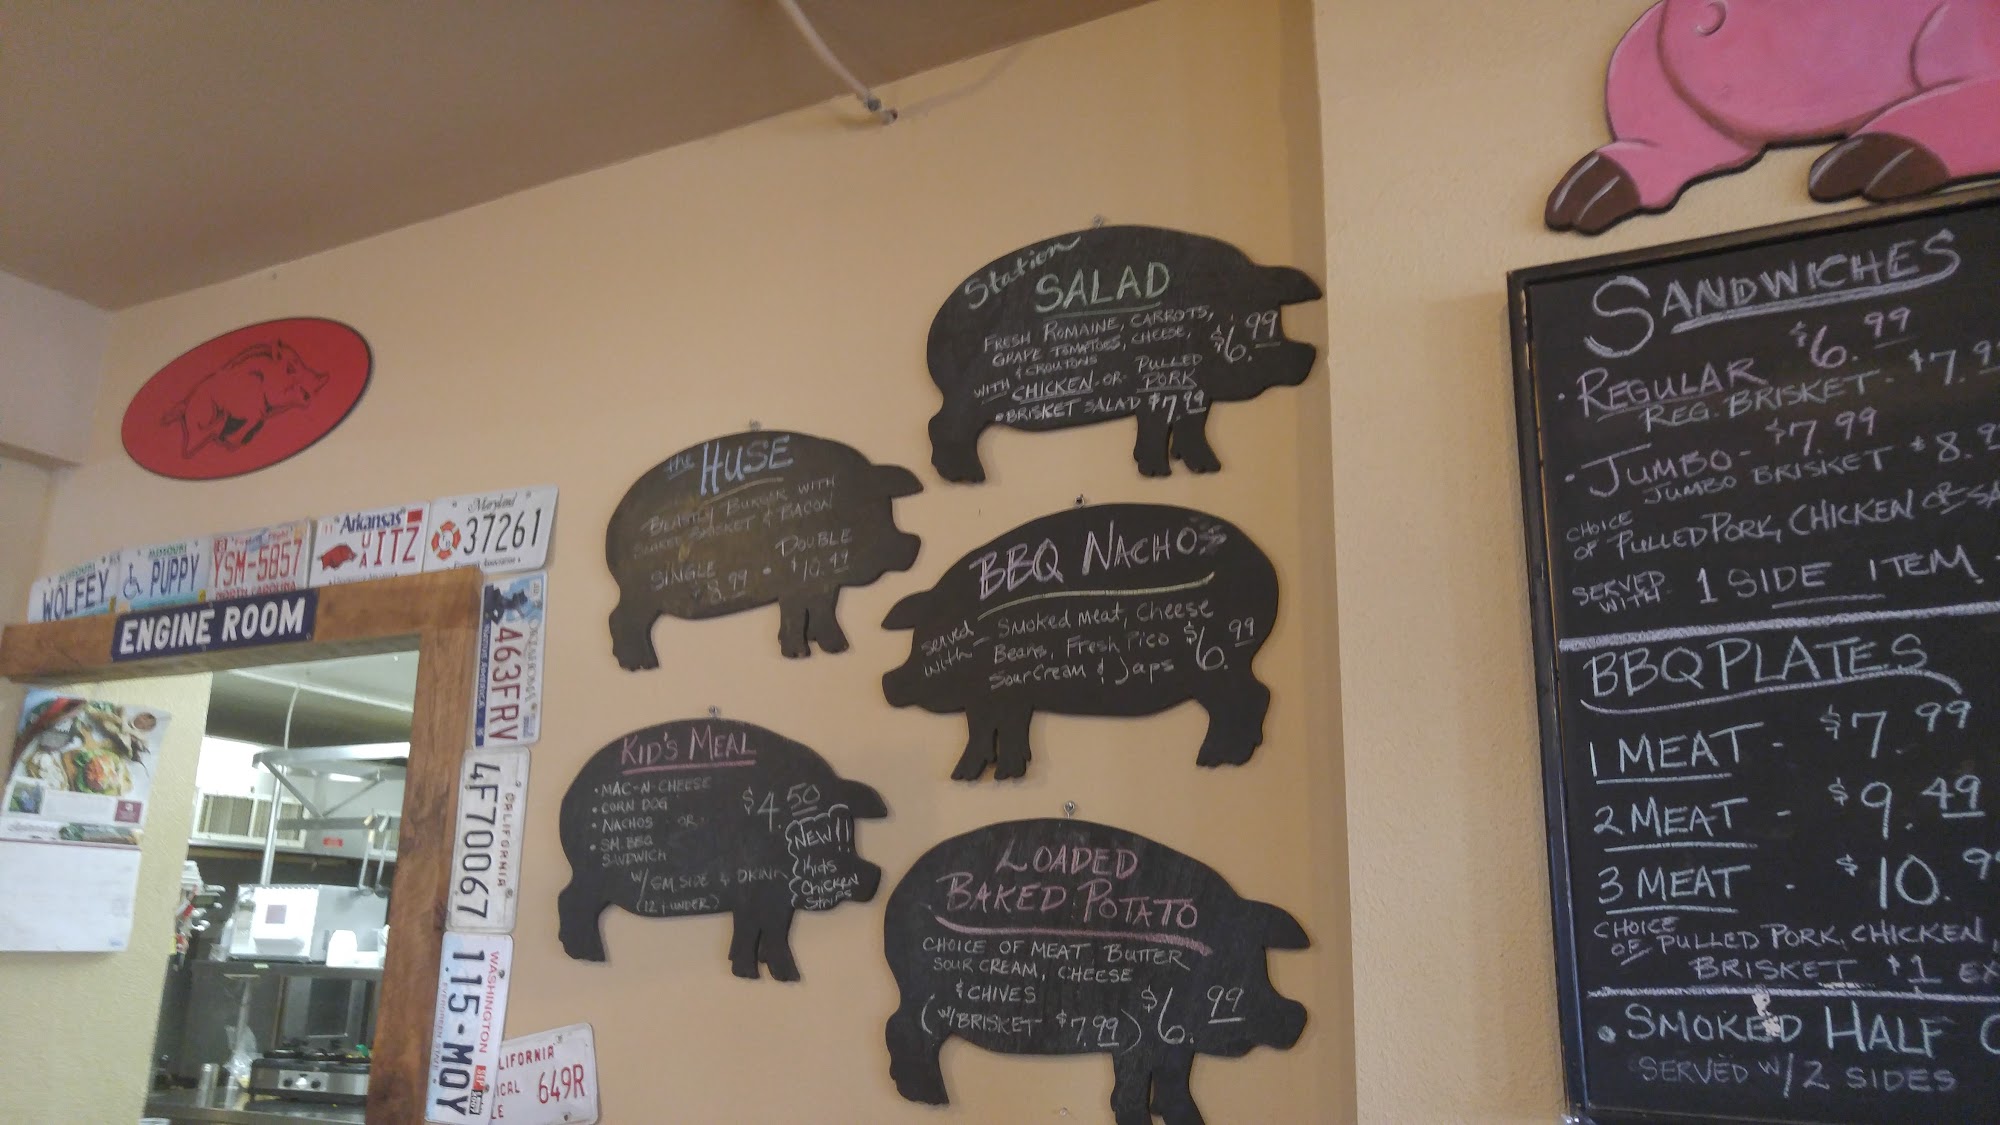 MISSOURI
WOLFEY
MISSOURI
PUPPY
YSM-5857
NORTH CAROLINA
Arkansas
UA ITZ
Maryland
37261
ENGINE ROOM
463FRV
OKLAHOMA
NATIVE AMERICA
4F70067
CALIFORNIA
115·MQY
WASHINGTON
EVERGREEN STATE
649R
Station
SALAD
FRESH ROMAINE, CARROTS,
GRAPE TOMATOES, CHEESE,
& CROUTONS
WITH CHICKEN -OR- PULLED
PORK
$6.99
• BRISKET SALAD $7.99
the HUSE
BURGER WITH
BRISKET & BACON
SINGLE
8.99 -
DOUBLE
$10.49
BBQ NACHOS
Served
with -
Smoked meat, Cheese
Beans, Fresh Pico
Sour Cream & Japs
$6.99
KID'S MEAL
• MAC-N-CHEESE
• CORN DOG
• NACHOS -OR-
• SM. BBQ
SANDWICH
$4.50
W/ SM. SIDE & DRINK
(12 & UNDER)
NEW!!
Kids
Chicken
Strips
LOADED
BAKED POTATO
CHOICE OF MEAT BUTTER
SOUR CREAM, CHEESE
& CHIVES
(W/BRISKET $7.99) $6.99
SANDWICHES
• REGULAR $6.99
REG. BRISKET - $7.9
• JUMBO - $7.99
JUMBO BRISKET $8.9
CHOICE
OF PULLED PORK, CHICKEN OR SA
SERVED
WITH - 1 SIDE ITEM
BBQ PLATES
1 MEAT - $7.99
2 MEAT - $9.49
3 MEAT - $10.9
CHOICE
OF PULLED PORK, CHICKEN,
BRISKET $1 EX
• SMOKED HALF C
SERVED W/ 2 SIDES